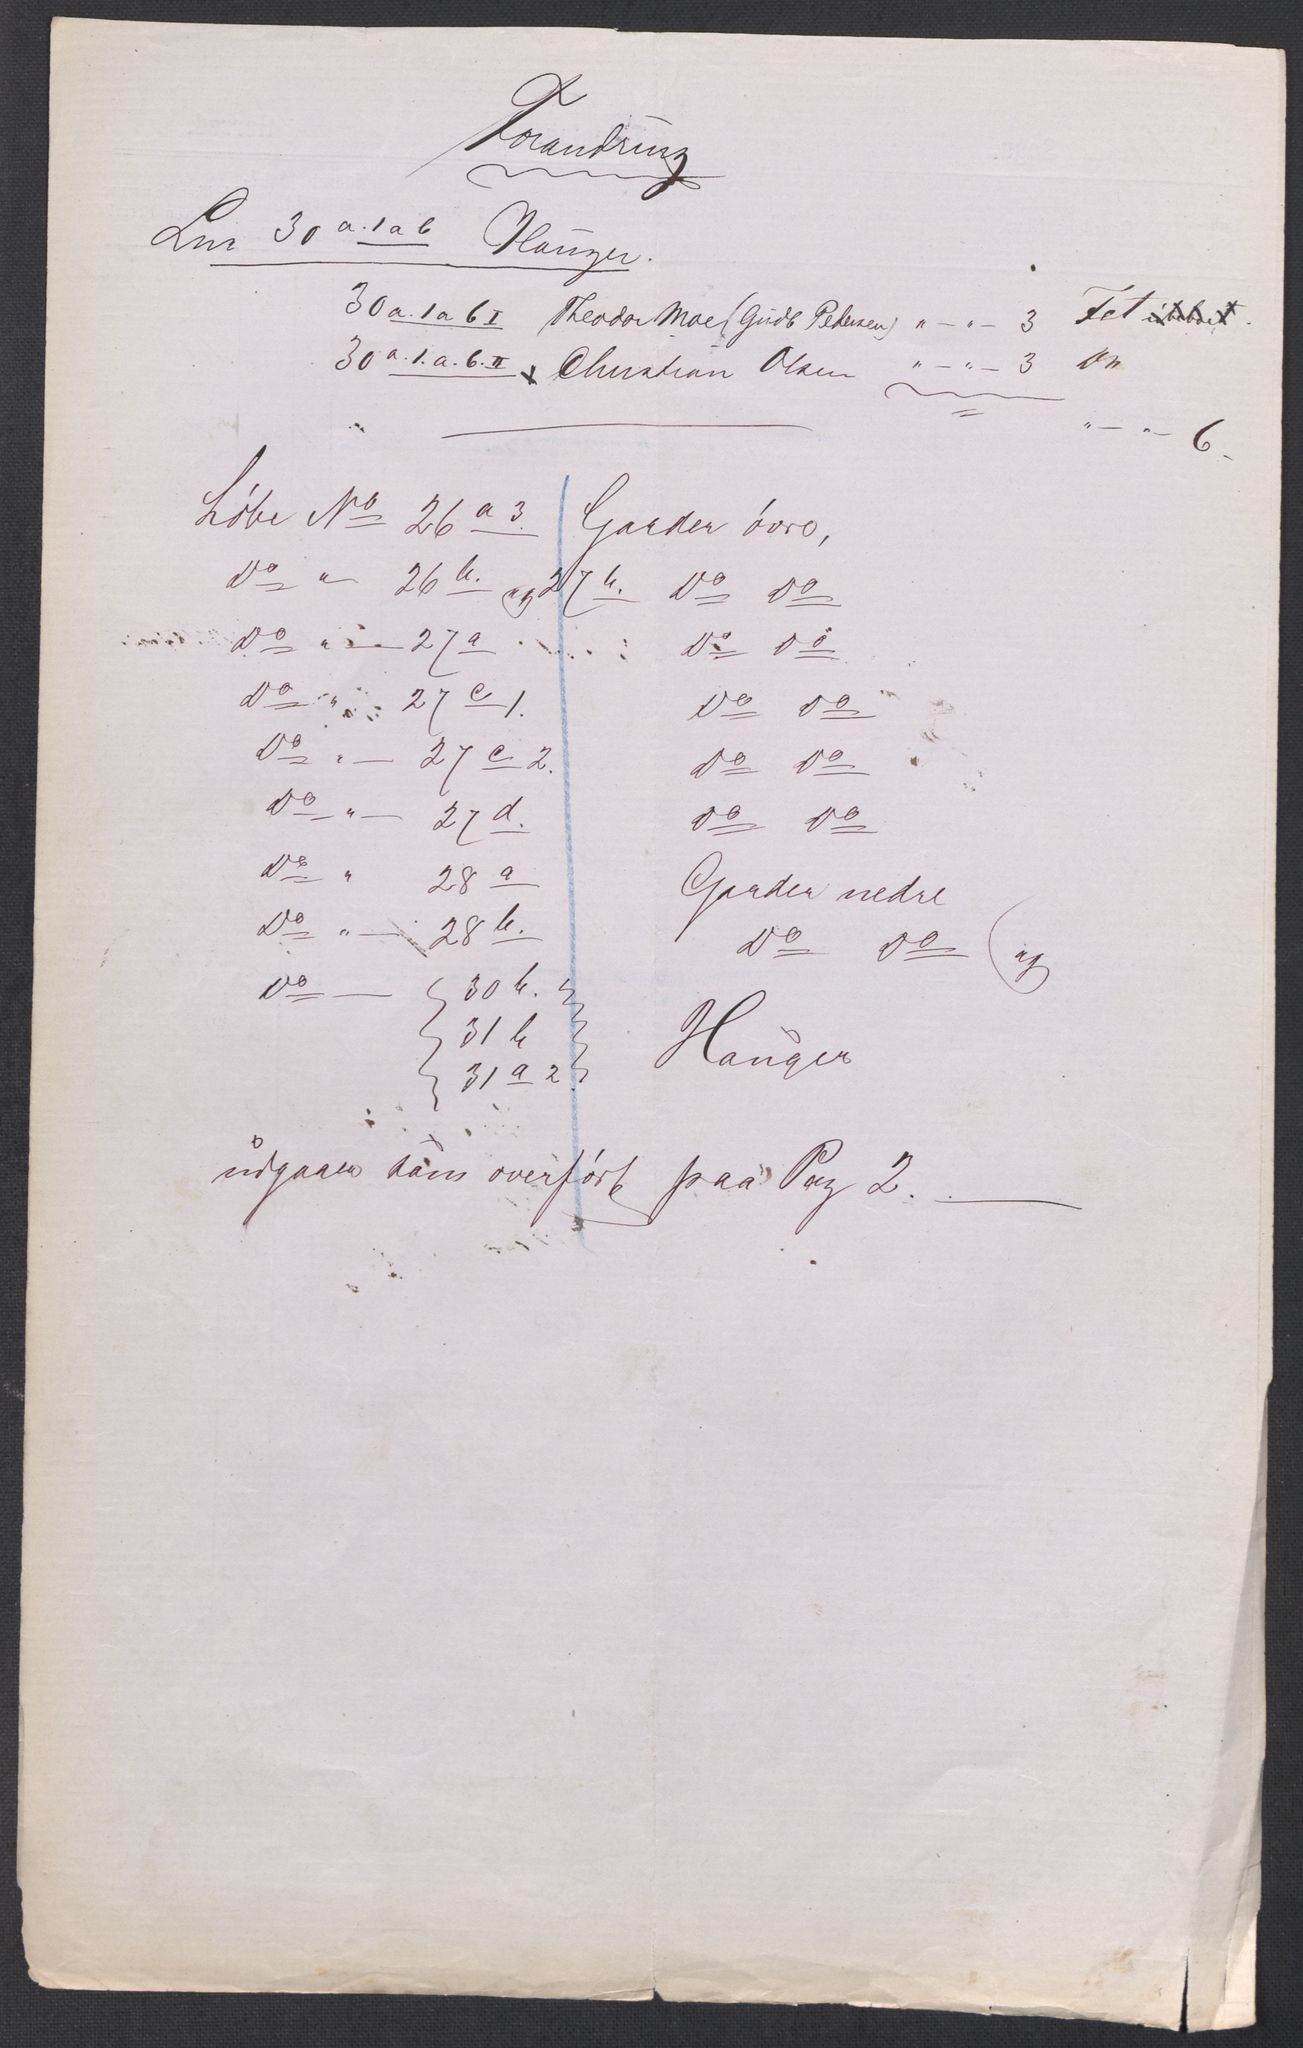 Forandring
Lnr 30 a.1a b Hauger.
30 a.1a b I Theodor Moe (Gudb Pedersen) " - " - 3 Fet
30 a.1.a.b.II x Christian Olsen " - " - 3 Do
" - " - 6.
Löbe No 26 a 3. Garder övre,
Do " 26 b. og 27 b. Do Do
Do " - 27 a Do Do
Do " 27 c 1. Do Do
Do " - 27 c 2. Do Do
Do " - 27 d. Do Do
Do " 28 a Garder nedre
Do " - 28 b. Do Do og
Do - 30 b.
31 b Hauger
31 a 2.
udgaaer som overfört paa Pag 2.